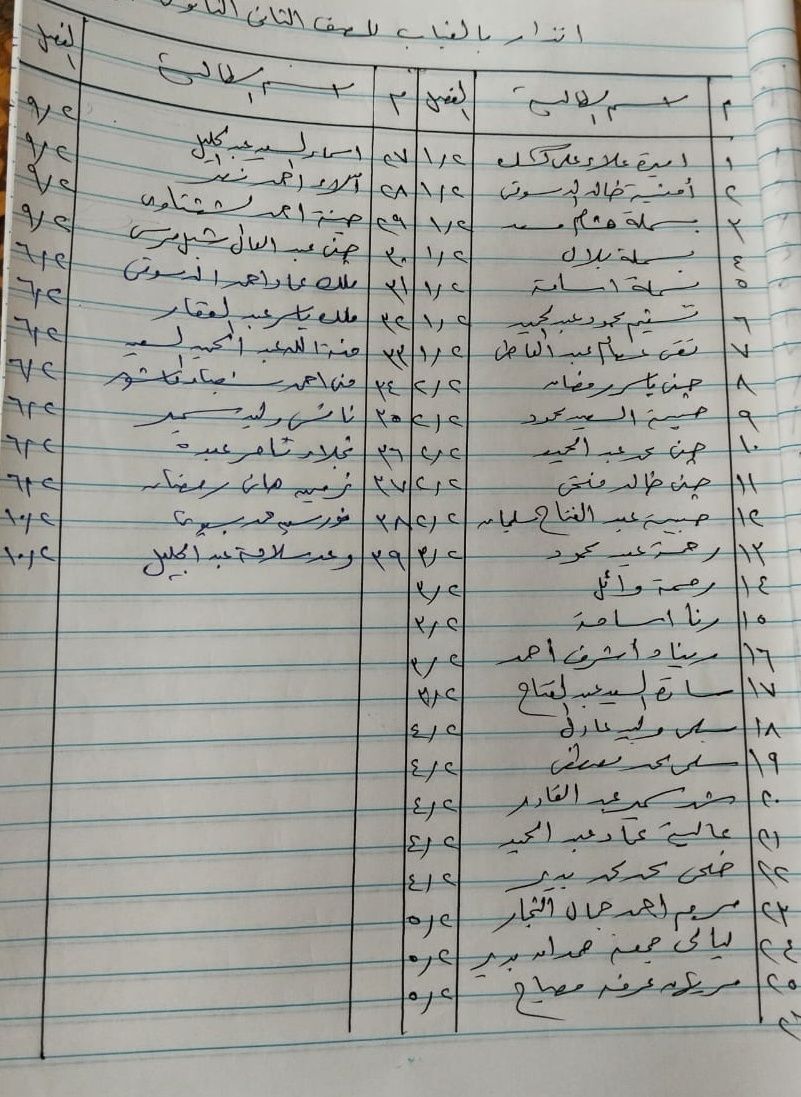 انذار بالغياب للصف الثانى الثانوى
م اسم الطالبة الفصل م اسم الطالبة الفصل
١ اميرة علاء على ١/٢ ٢٧ اسماء السيد عبد الجليل ٩/٢
٢ أمنية خالد الدسوقى ١/٢ ٢٨ آلاء احمد ٩/٢
٣ بسملة هشام مسعد ١/٢ ٢٩ احمد الششتاوى ٩/٢
٤ بسملة بلال ١/٢ ٣٠ جنى عبد العال شبل مرسى ٩/٢
٥ بسملة اسامة ١/٢ ٣١ ملك عماد احمد الدسوقى ٦/٢
٦ تسنيم محمود عبد الحميد ١/٢ ٣٢ ملك ياسر عبد الغفار ٦/٢
٧ تقى عصام عبد العاطى ١/٢ ٣٣ منة الله عبد الحميد السعيد ٦/٢
٨ جنى ياسر رمضان ٢/٢ ٣٤ منى احمد عاشور ٦/٢
٩ حبيبة السعيد محمود ٢/٢ ٣٥ وليد سمير ٦/٢
١٠ جنى محمد عبد الحميد ٢/٢ ٣٦ نجلاء تامر عبده ٦/٢
١١ جنى خالد فتحى ٢/٢ ٣٧ نرمين هانى رمضان ٦/٢
١٢ حبيبة عبد الفتاح سليمان ٢/٢ ٣٨ محمد بسيونى ١٠/٢
١٣ رحمة عيد محمود ٣/٢ ٣٩ وعد سلامة عبد الجليل ١٠/٢
١٤ رحمة وائل ٣/٢
١٥ رنا اسامة ٣/٢
١٦ ريناد اشرف احمد ٣/٢
١٧ سارة السيد عبد الفتاح ٣/٢
١٨ سلمى وليد عادل ٤/٢
١٩ سلمى محمد مصطفى ٤/٢
٢٠ شهد سمير عبد القادر ٤/٢
٢١ عالية عماد عبد الحميد ٤/٢
٢٢ ضحى محمد محمد بدير ٤/٢
٢٣ مريم احمد جمال النجار ٥/٢
٢٤ ليالى جمعة حمدان بدير ٥/٢
٢٥ مريهان عرفه مصباح ٥/٢